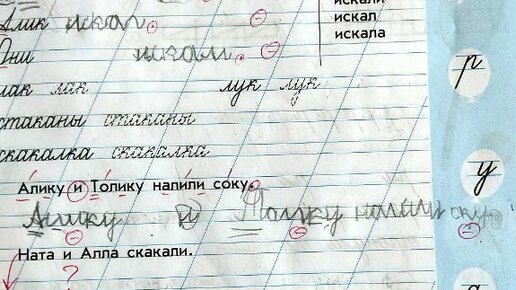 искали
Алик искал
искал
Они искали
искала
лак лак лук лук
стаканы стаканы
скакалка скакалка
Алику и Толику налили соку.
Алику и Толику налили ску
Ната и Алла скакали.
?
р
у